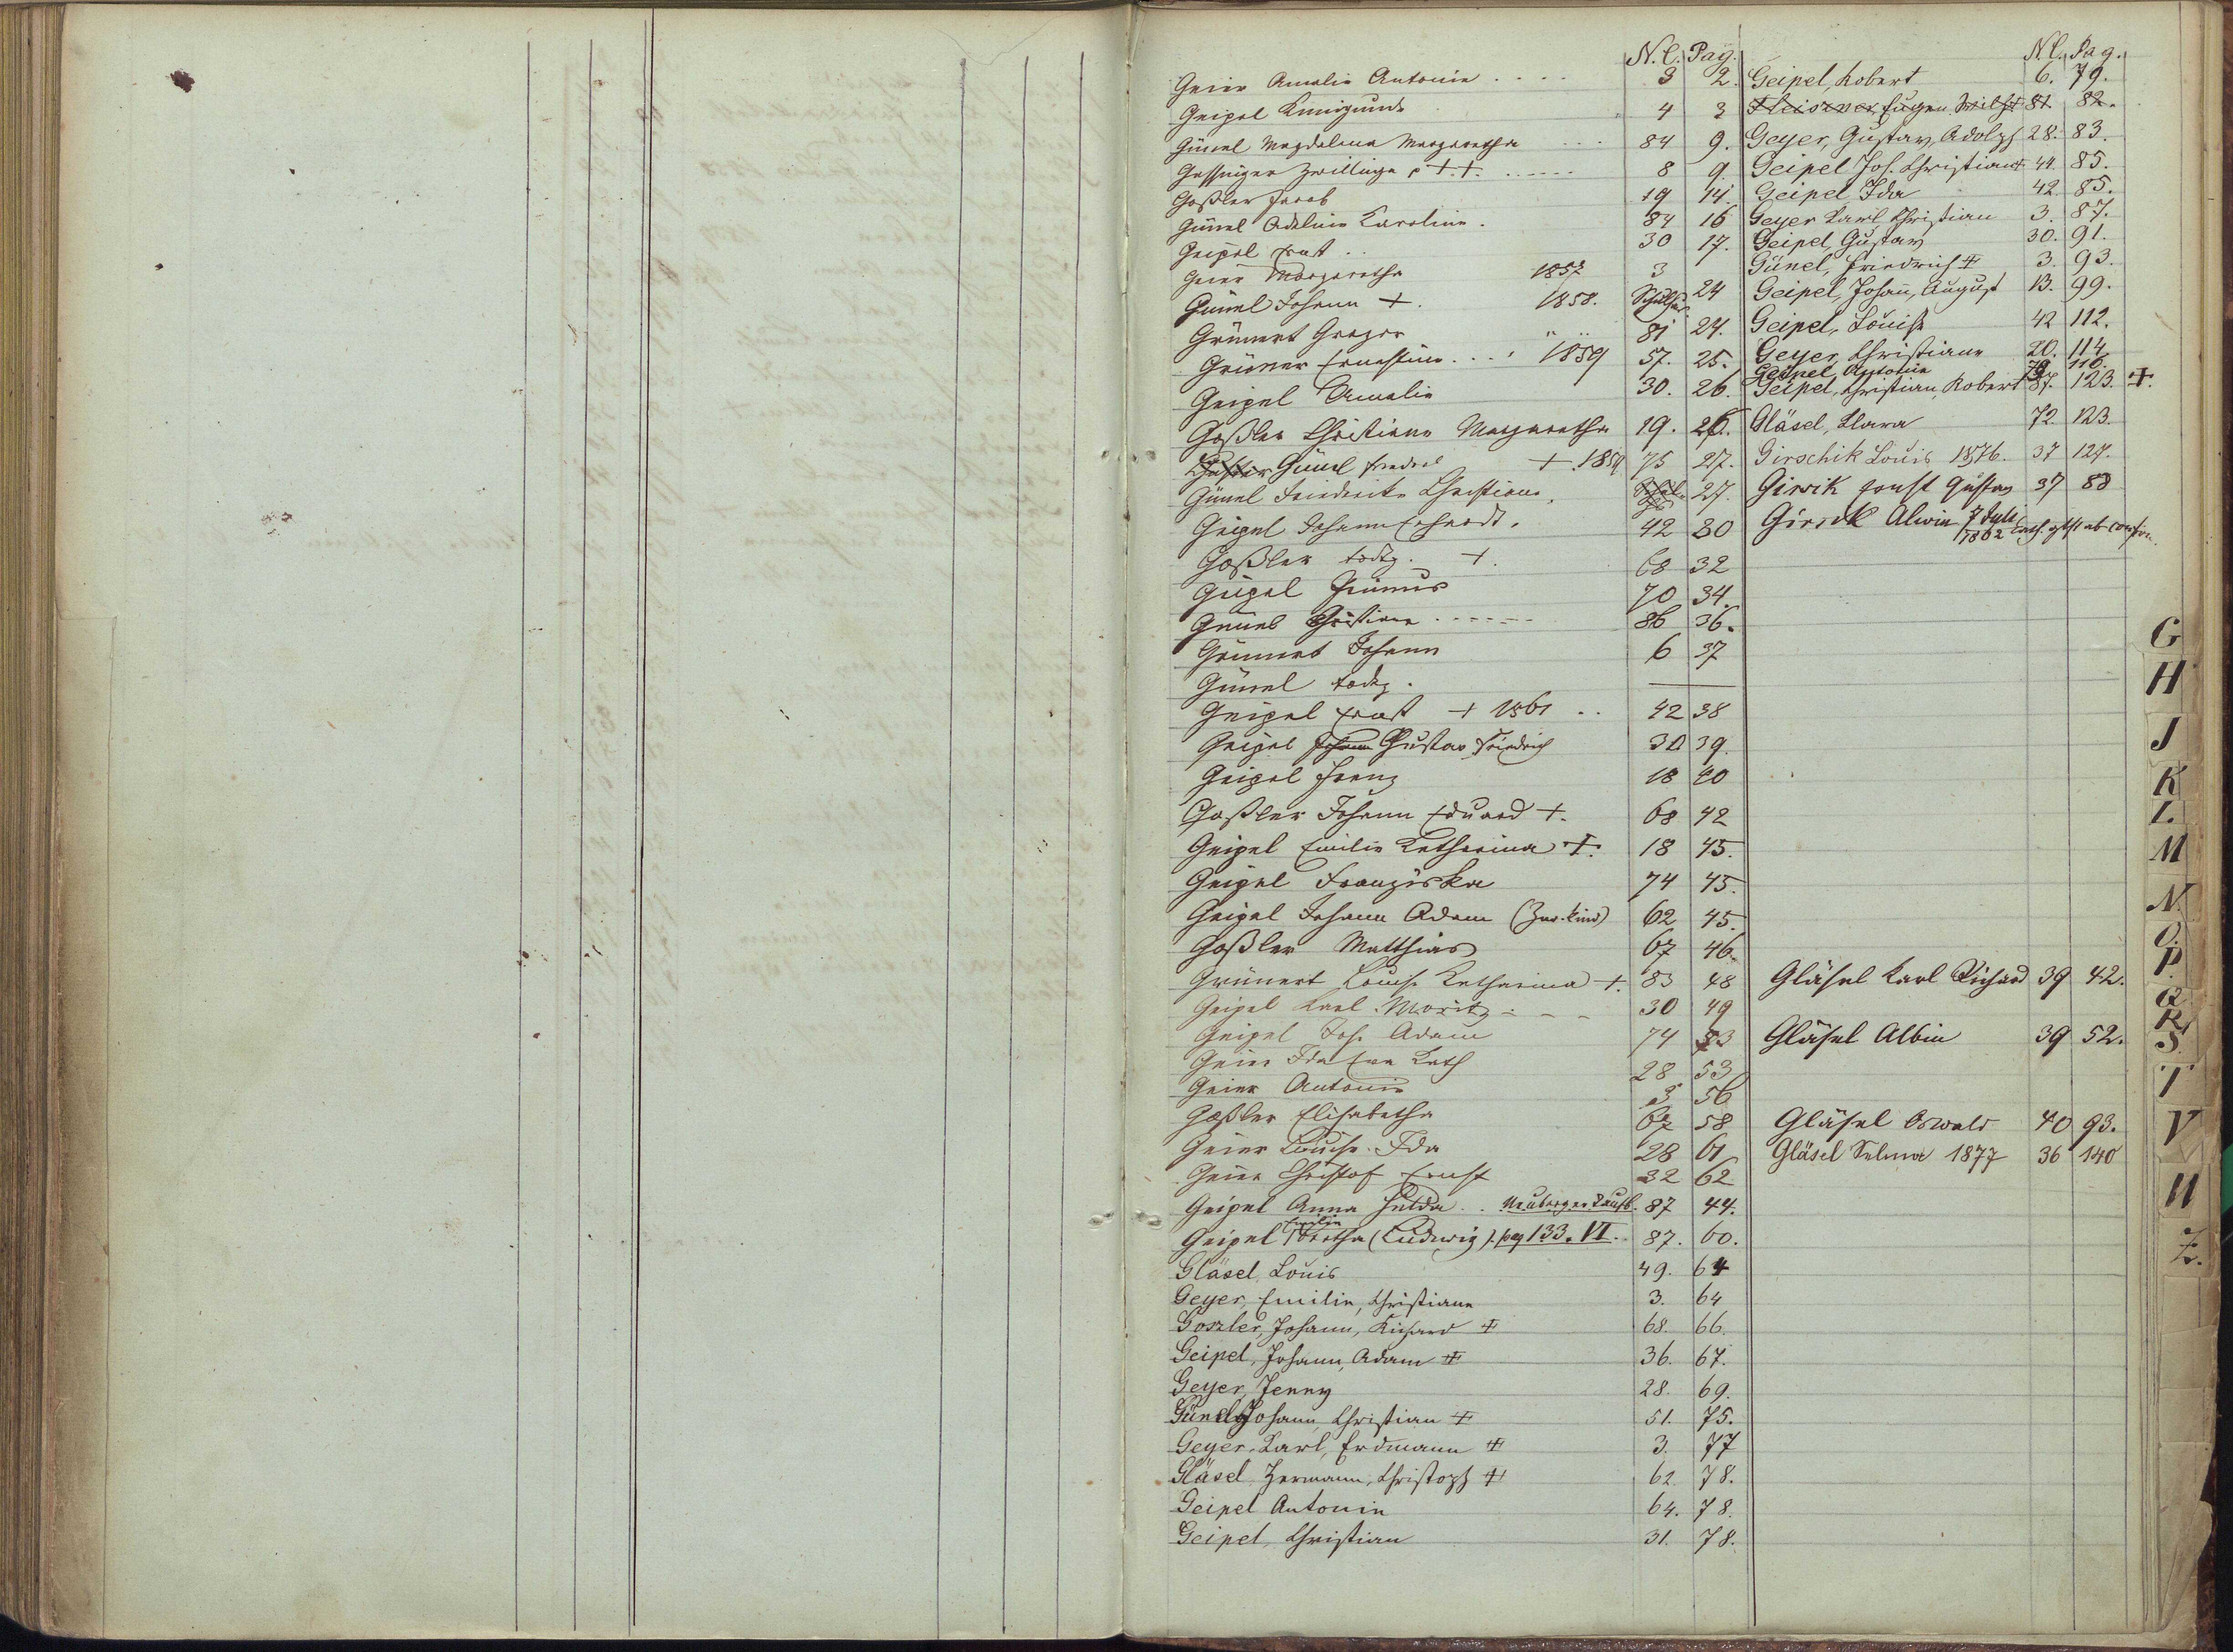 N.C. Pag.
Geier Amalie Antonie . . . . 3 2.
Geipel Kunigunde 4 3
Günel Magdalena Margaretha . . . 84 9.
Zwillinge ++. 8 9
Goßler Jacob 19 14.
Günel Adeline Karoline. 84 16
Geipel Ernst . . 30 17.
Geier Margaretha 1857 3
Günel Johann +. 1858. 24
Grünert Gregor " " 81 24.
Grüner Ernestine . . . . 1859 57. 25.
Geipel Amalie 30. 26.
Goßler Christiane Margaretha 19. 26.
Günel + 1859 75 27.
Günel Friederike Christiane. 27.
Geipel Johann Erhardt. 42 30
Goßler todtg. +. 68 32
Geipel 70 34.
Günel Christiana . . . . . . 86 36.
Grünert Johann 6 37
Günel todtg.
Geipel Ernst + 1861 . . 42 38
Geipel Johann Gustav Friedrich 30 39.
Geipel Franz 18 40
Goßler Johann Eduard +. 68 42
Geipel Emilie Katharina +. 18 45.
Geipel Franziska 74 45.
Geipel Johann Adam 62 45.
Goßler Matthias 67 46.
Grünert Louise Katharina +. 83 48
Geipel Karl Moritz - - - 30 49
Geipel Joh. Adam 74 53
Geier Ida Eva Kath 28 53
Geier Antonie 3 56
Goßler Elisabetha 67 58
Geier Louise Ida 28 61
Geier Christof Ernst 32 62
Geipel Anna Hulda . . Neuberger Taufb. 87 44.
Geipel Emilie Bertha (Ludwig) pag 133. VI. 87. 60.
Gläsel, Louis 49. 64
Geyer, Emilie, Christiane 3. 64
Goszler, Johann, Richard + 68. 66.
Geipel, Johann, Adam + 36. 67.
Geyer, Jenny 28. 69.
Günel, Johann Christian + 51. 75.
Geyer, Karl, Erdmann + 3. 77
Gläsel Hermann, Christoph + 62. 78.
Geipel Antonie 64. 78.
Geipel, Christian 31. 78.
N.C. Pag.
Geipel, Robert 6. 79.
Fleiszner Eugen 81 82.
Geyer, Gustav, Adolph 28. 83.
Geipel Joh. Christian + 44. 85.
Geipel Ida 42. 85.
Geyer Karl Christian 3. 87.
Geipel, Gustav 30. 91.
Günel, Friedrich + 3. 93.
Geipel, Johan, August 13. 99.
Geipel, Louise 42 112.
Geyer, Christiane 20. 114.
Geipel Antonie 79 116.
Geipel, Christian, Robert 87. 123. +.
Gläsel, Klara 72. 123.
Girschik Louis 1876. 37 127.
Girsik Ernst Gustav 37 88
Girsik Alwin 7 Juli 1862
Gläsel Karl Richard 39 42.
Gläsel Albin 39 52.
Gläsel Oswald 40 93.
Gläsel Selma 1877 36 140
G
H
J
K
L.
M
N.
O.
P.
Q
R
S.
T
V
U
Z.